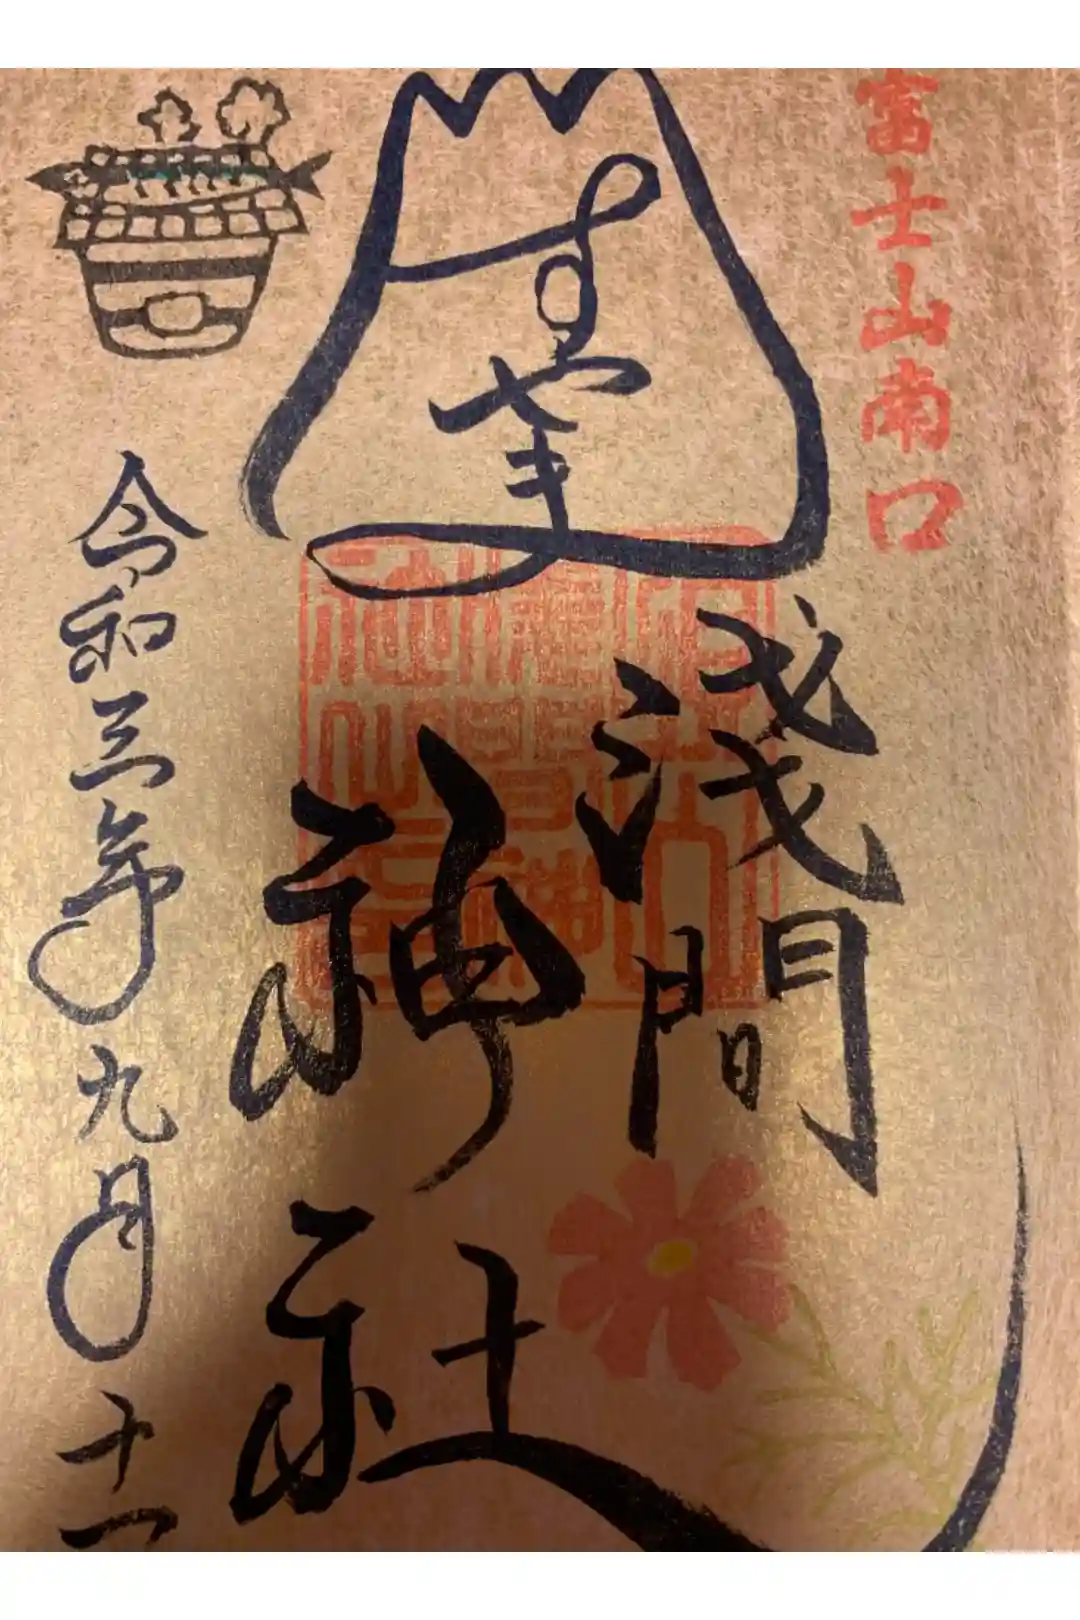 富士山南口
すやき
淺間
神社
令和三年九月十一